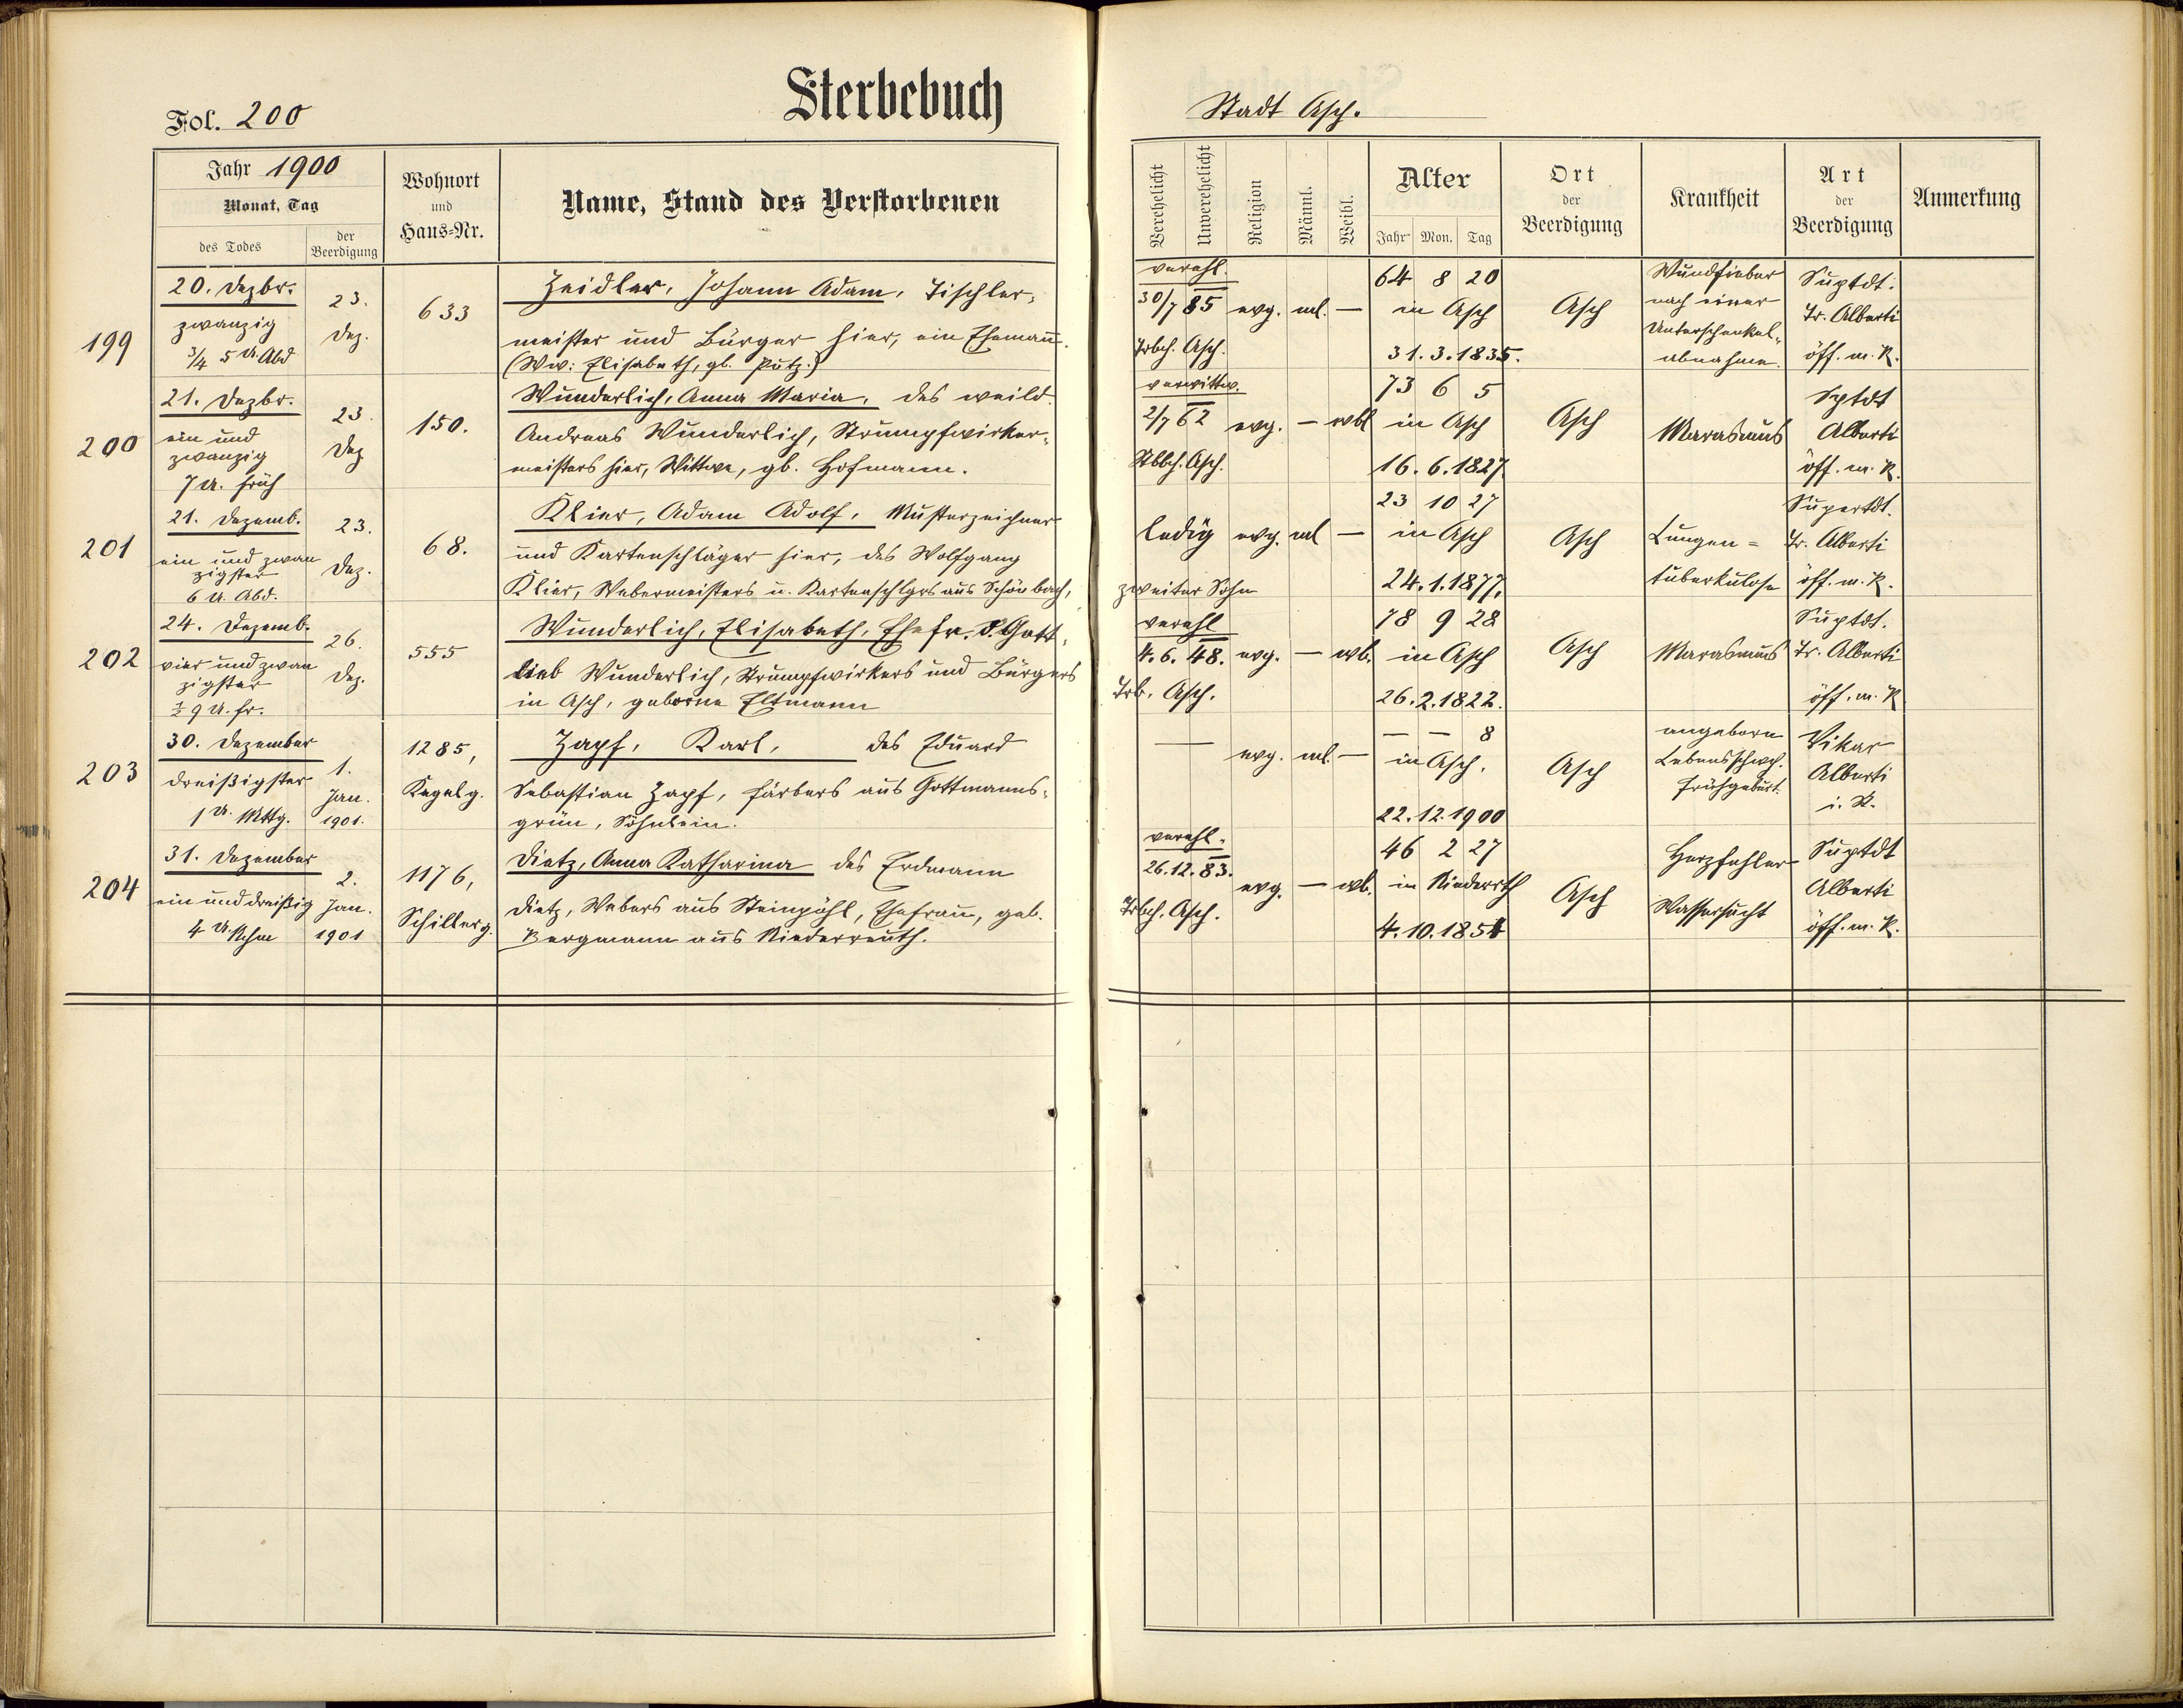 Fol. 200
Sterbebuch
Stadt Asch.
Jahr 1900
Monat, Tag
des Todes
der Beerdigung
Wohnort
und
Haus-Nr.
Name, Stand des Verstorbenen
Verehelicht
Unverehelicht
Religion
Männl.
Weibl.
Alter
Jahr Mon. Tag
Ort
der
Beerdigung
Krankheit
Art
der
Beerdigung
Anmerkung
199
20. Dezbr.
zwanzig
3/4 5 U. Abd
23.
Dez.
633
Zeidler, Johann Adam, Tischler-
meister und Bürger hier, ein Ehemann.
(Ww: Elisabeth, gb. Putz.)
verehl.
30/7 85
Trbch. Asch.
evg. ml. —
64 8 20
in Asch
31.3.1835.
Asch
Wundfieber
nach einer
Unterschenkel-
abnahme.
Suptdt.
Tr. Alberti
öff. m. R.
200
21. Dezbr.
ein und
zwanzig
7 U. früh
23.
Dez
150.
Wunderlich, Anna Maria, des weild.
Andreas Wunderlich, Strumpfwirker-
meisters hier, Wittwe, gb. Hofmann.
verwittw.
2/7 62
Stbbch. Asch.
evg. — wbl
73 6 5
in Asch
16.6.1827.
Asch
Marasmus
Sptdt
Alberti
öff. m. R.
201
21. Dezemb.
ein und zwan
zigster
6 U. Abd.
23.
Dez.
68.
Klier, Adam Adolf, Musterzeichner
und Kartenschläger hier, des Wolfgang
Klier, Webermeisters u. Kartenschlgrs aus Schönbach,
zweiter Sohn
ledig evg. ml —
23 10 27
in Asch
24.1.1877.
Asch
Lungen=
tuberkulose
Supertdt.
Tr. Alberti
öff. m. R.
202
24. Dezemb.
vier und zwan
zigster
1/2 9 U. fr.
26.
Dez.
555
Wunderlich, Elisabeth, Ehefr. d. Gott-
lieb Wunderlich, Strumpfwirkers und Bürgers
in Asch, geborne Eltmann
verehl
4.6.48.
Trb. Asch.
evg. — wb.
78 9 28
in Asch
26.2.1822.
Asch
Marasmus
Suptdt.
Tr. Alberti
öff. m. R
203
30. Dezember
dreißigster
1 U. Mttg.
1.
Jan.
1901.
1285,
Kegelg.
Zapf, Karl, des Eduard
Sebastian Zapf, Färbers aus Gottmanns-
grün, Söhnlein.
— evg. ml. —
— — 8
in Asch.
22.12.1900
Asch
angeborn
Lebensschwch.
Frühgeburt.
Vikar
Alberti
i. K.
204
31. Dezember
ein und dreißig
4 U. Nchm
2.
Jan.
1901
1176,
Schillerg.
Dietz, Anna Katharina des Erdmann
Dietz, Webers aus Steinpöhl, Ehefrau, geb.
Bergmann aus Niederreuth.
verehl.
26.12.83.
Trbch. Asch.
evg. — wb.
46 2 27
in Niederrth
4.10.1854
Asch
Herzfehler
Wassersucht
Suptdt
Alberti
öff. m. R.